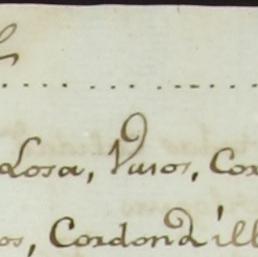 Losa, Vasos, Cor
os, Cordondill